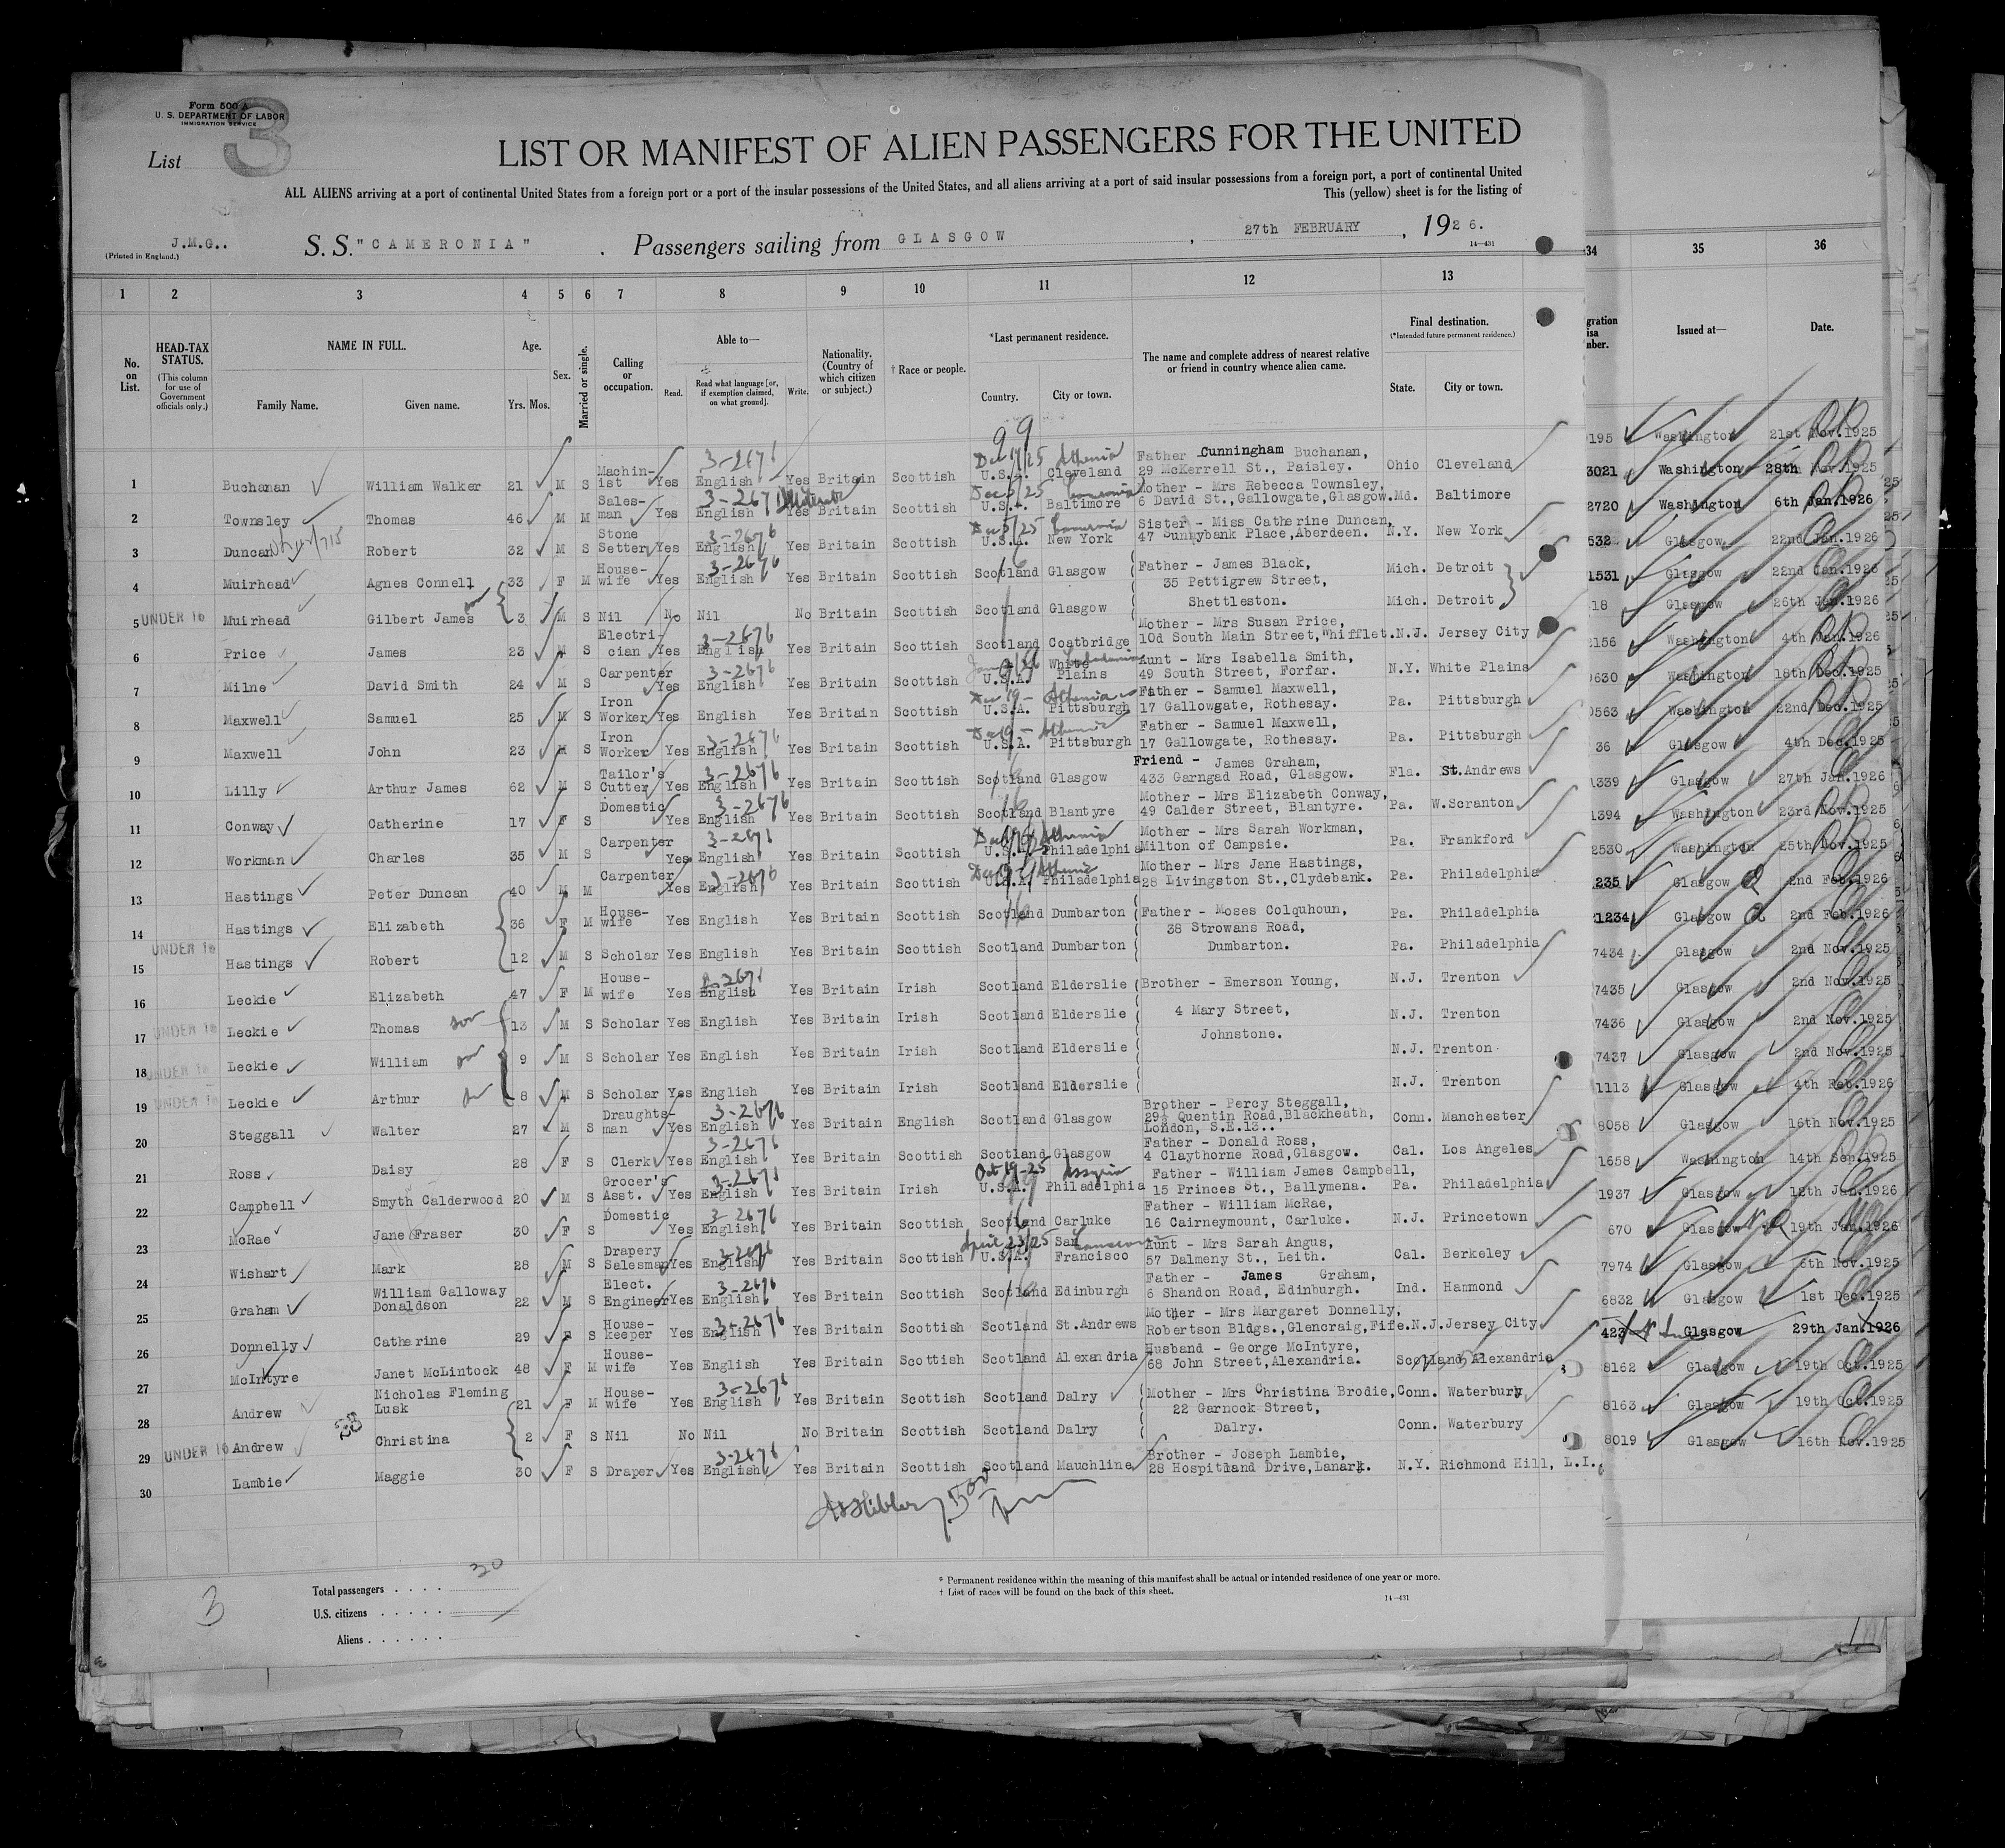 Form 500 A
U. S. DEPARTMENT OF LABOR
IMMIGRATION SERVICE
List 3
LIST OR MANIFEST OF ALIEN PASSENGERS FOR THE UNITED
ALL ALIENS arriving at a port of continental United States from a foreign port or a port of the insular possessions of the United States, and all aliens arriving at a port of said insular possessions from a foreign port, a port of continental United
This (yellow) sheet is for the listing of
J.M.G..
(Printed in England.)
S. S. "CAMERONIA" . Passengers sailing from GLASGOW , 27th FEBRUARY , 1926.
14-431
1 2 3 4 5 6 7 8 9 10 11 12 13 34 35 36
No. on List.
HEAD-TAX STATUS.
(This column for use of Government officials only.)
NAME IN FULL.
Family Name. Given name.
Age.
Yrs. Mos.
Sex.
Married or single.
Calling or occupation.
Able to—
Read. Read what language [or, if exemption claimed, on what ground]. Write.
Nationality. (Country of which citizen or subject.)
† Race or people.
*Last permanent residence.
Country. City or town.
The name and complete address of nearest relative or friend in country whence alien came.
Final destination.
(*Intended future permanent residence.)
State. City or town.
Issued at— Date.
1 Buchanan William Walker 21 M S Machinist Yes English 3-2676 Yes Britain Scottish U.S.A. Cleveland Father Cunningham Buchanan, 29 McKerrell St., Paisley. Ohio Cleveland
2 Townsley Thomas 46 M M Salesman Yes English Yes Britain Scottish U.S.A. Baltimore Mother - Mrs Rebecca Townsley, 6 David St., Gallowgate, Glasgow. Md. Baltimore
3 Duncan Robert 32 M S Stone Setter Yes English 3-2676 Yes Britain Scottish U.S.A. New York Sister - Miss Catherine Duncan, 47 Sunnybank Place, Aberdeen. N.Y. New York
4 Muirhead Agnes Connell 33 F M Housewife Yes English 3-2676 Yes Britain Scottish Scotland Glasgow Father - James Black, 35 Pettigrew Street, Shettleston. Mich. Detroit
5 UNDER 16 Muirhead Gilbert James 3 M S Nil No Nil No Britain Scottish Scotland Glasgow Mich. Detroit
6 Price James 23 M S Electrician Yes English 3-2676 Yes Britain Scottish Scotland Coatbridge Mother - Mrs Susan Price, 10d South Main Street, Whifflet. N.J. Jersey City
7 Milne David Smith 24 M S Carpenter Yes English 3-2676 Yes Britain Scottish U.S.A. White Plains Aunt - Mrs Isabella Smith, 49 South Street, Forfar. N.Y. White Plains
8 Maxwell Samuel 25 M S Iron Worker Yes English Yes Britain Scottish U.S.A. Pittsburgh Father - Samuel Maxwell, 17 Gallowgate, Rothesay. Pa. Pittsburgh
9 Maxwell John 23 M S Iron Worker Yes English 3-2676 Yes Britain Scottish U.S.A. Pittsburgh Father - Samuel Maxwell, 17 Gallowgate, Rothesay. Pa. Pittsburgh
10 Lilly Arthur James 62 M S Tailor's Cutter Yes English 3-2676 Yes Britain Scottish Scotland Glasgow Friend - James Graham, 433 Garngad Road, Glasgow. Fla. St. Andrews
11 Conway Catherine 17 F S Domestic Yes English 3-2676 Yes Britain Scottish Scotland Blantyre Mother - Mrs Elizabeth Conway, 49 Calder Street, Blantyre. Pa. W.Scranton
12 Workman Charles 35 M S Carpenter Yes English 3-2676 Yes Britain Scottish U.S.A. Philadelphia Mother - Mrs Sarah Workman, Milton of Campsie. Pa. Frankford
13 Hastings Peter Duncan 40 M M Carpenter Yes English 3-2676 Yes Britain Scottish U.S.A. Philadelphia Mother - Mrs Jane Hastings, 28 Livingston St., Clydebank. Pa. Philadelphia
14 Hastings Elizabeth 36 F M Housewife Yes English Yes Britain Scottish Scotland Dumbarton Father - Moses Colquhoun, 38 Strowans Road, Dumbarton. Pa. Philadelphia
15 UNDER 16 Hastings Robert 12 M S Scholar Yes English Yes Britain Scottish Scotland Dumbarton Pa. Philadelphia
16 Leckie Elizabeth 47 F M Housewife Yes English Yes Britain Irish Scotland Elderslie Brother - Emerson Young, 4 Mary Street, Johnstone. N.J. Trenton
17 UNDER 16 Leckie Thomas son 13 M S Scholar Yes English Yes Britain Irish Scotland Elderslie N.J. Trenton
18 UNDER 16 Leckie William son 9 M S Scholar Yes English Yes Britain Irish Scotland Elderslie N.J. Trenton
19 UNDER 16 Leckie Arthur son 8 M S Scholar Yes English Yes Britain Irish Scotland Elderslie N.J. Trenton
20 Steggall Walter 27 M S Draughtsman Yes English 3-2676 Yes Britain English Scotland Glasgow Brother - Percy Steggall, 29½ Quentin Road, Blackheath, London, S.E.13.. Conn. Manchester
21 Ross Daisy 28 F S Clerk Yes English 3-2676 Yes Britain Scottish Scotland Glasgow Father - Donald Ross, 4 Claythorne Road, Glasgow. Cal. Los Angeles
22 Campbell Smyth Calderwood 20 M S Grocer's Asst. Yes English 3-2671 Yes Britain Irish U.S.A. Philadelphia Father - William James Campbell, 15 Princes St., Ballymena. Pa. Philadelphia
23 McRae Jane Fraser 30 F S Domestic Yes English 3-2676 Yes Britain Scottish Scotland Carluke Father - William McRae, 16 Cairneymount, Carluke. N.J. Princetown
24 Wishart Mark 28 M S Drapery Salesman Yes English 3-2676 Yes Britain Scottish U.S.A. San Francisco Aunt - Mrs Sarah Angus, 57 Dalmeny St., Leith. Cal. Berkeley
25 Graham William Galloway Donaldson 22 M S Elect. Engineer Yes English 3-2676 Yes Britain Scottish Scotland Edinburgh Father - James Graham, 6 Shandon Road, Edinburgh. Ind. Hammond
26 Donnelly Catherine 29 F S Housekeeper Yes English 3-2676 Yes Britain Scottish Scotland St.Andrews Mother - Mrs Margaret Donnelly, Robertson Bldgs., Glencraig, Fife. N.J. Jersey City
27 McIntyre Janet McLintock 48 F M Housewife Yes English Yes Britain Scottish Scotland Alexandria Husband - George McIntyre, 68 John Street, Alexandria. Scotland Alexandria
28 Andrew Nicholas Fleming Lusk 21 F M Housewife Yes English 3-2676 Yes Britain Scottish Scotland Dalry Mother - Mrs Christina Brodie, 22 Garnock Street, Dalry. Conn. Waterbury
29 UNDER 16 Andrew Christina 2 F S Nil No Nil No Britain Scottish Scotland Dalry Conn. Waterbury
30 Lambie Maggie 30 F S Draper Yes English 3-2676 Yes Britain Scottish Scotland Mauchline Brother - Joseph Lambie, 28 Hospitland Drive, Lanark. N.Y. Richmond Hill, L.I.
195 Washington 21st Nov.1925
3021 Washington 28th Nov.1925
2720 Washington 6th Jan.1926
532 Glasgow 22nd Jan.1926
1531 Glasgow 22nd Jan.1926
18 Glasgow 26th Jan.1926
2156 Washington 4th Jan.1926
9630 Washington 18th Dec.1925
0563 Washington 22nd Dec.1925
36 Glasgow 4th Dec.1925
1339 Glasgow 27th Jan.1926
1394 Washington 23rd Nov.1925
2530 Washington 25th Nov.1925
1235 Glasgow 2nd Feb.1926
21234 Glasgow 2nd Feb.1926
7434 Glasgow 2nd Nov.1925
7435 Glasgow 2nd Nov.1925
7436 Glasgow 2nd Nov.1925
7437 Glasgow 2nd Nov.1925
1113 Glasgow 4th Feb.1926
8058 Glasgow 16th Nov.1925
1658 Washington 14th Sep.1925
1937 Glasgow 12th Jan.1926
670 Glasgow 19th Jan.1926
7974 Glasgow 6th Nov.1925
6832 Glasgow 1st Dec.1925
423 Glasgow 29th Jan.1926
8162 Glasgow 19th Oct.1925
8163 Glasgow 19th Oct.1925
8019 Glasgow 16th Nov.1925
3
Total passengers . . . . 30
U.S. citizens . . . . .
Aliens . . . . . .
* Permanent residence within the meaning of this manifest shall be actual or intended residence of one year or more.
† List of races will be found on the back of this sheet.
14-431